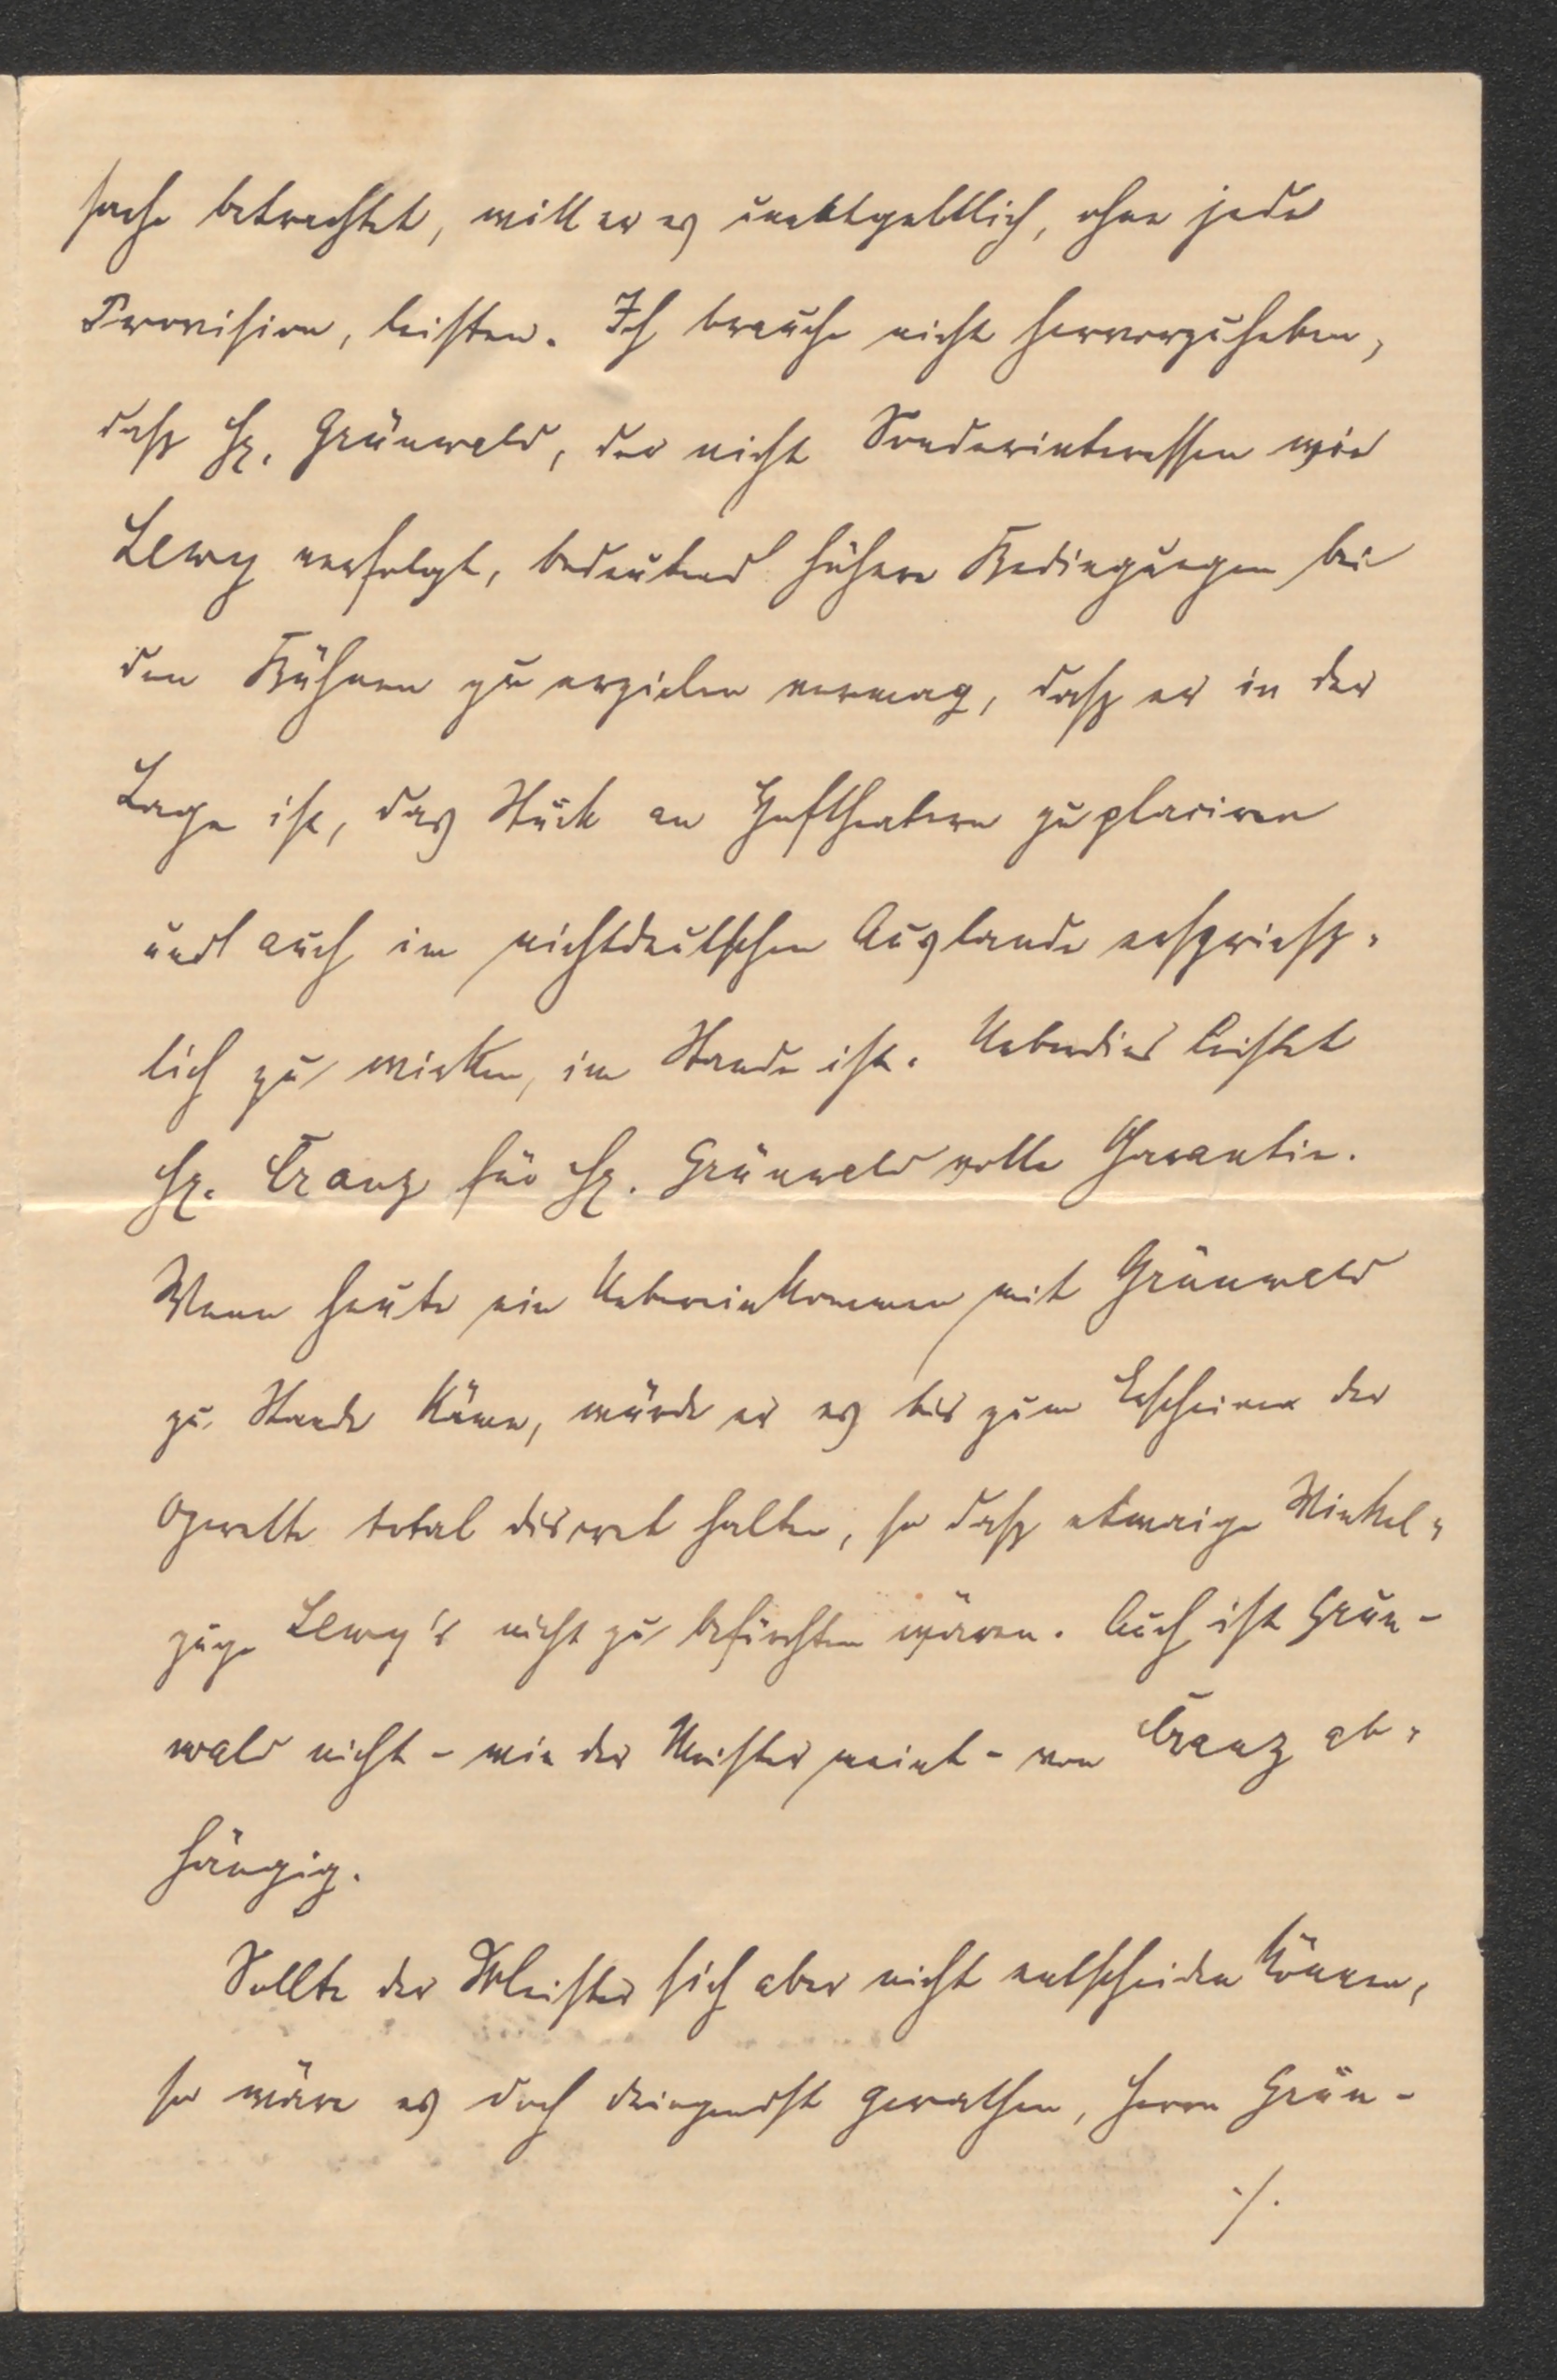 sache betrachtet, will er es unentgeltlich, ohne jede
Provision, leisten. Ich brauche nicht hervorzuheben,
daß Hr. Grünwald, der nicht Sonderinteressen wie
Lewy verfolgt, bedeutend höhere Bedingungen bei
den Bühnen zu erzielen vermag, daß er in der
Lage ist, das Stück an Hoftheatern zu placiren
und auch im nichtdeutschen Auslande ersprieß-
lich zu wirken, im Stande ist. Ueberdies leistet
Hr. Cranz für Hr. Grünwald volle Garantie.
Wenn heute ein Uebereinkommen mit Grünwald
zu Stande käme, würde er es bis zum Erscheinen der
Operette total discret halten, so daß etwaige Winkel-
züge Lewy's nicht zu befürchten wären. Auch ist Grün-
wald nicht - wie der Meister meint - von Cranz ab-
hängig.
Sollte der Meister sich aber nicht entscheiden können,
so wäre es doch dringendst gerathen, Herrn Grün-
./.